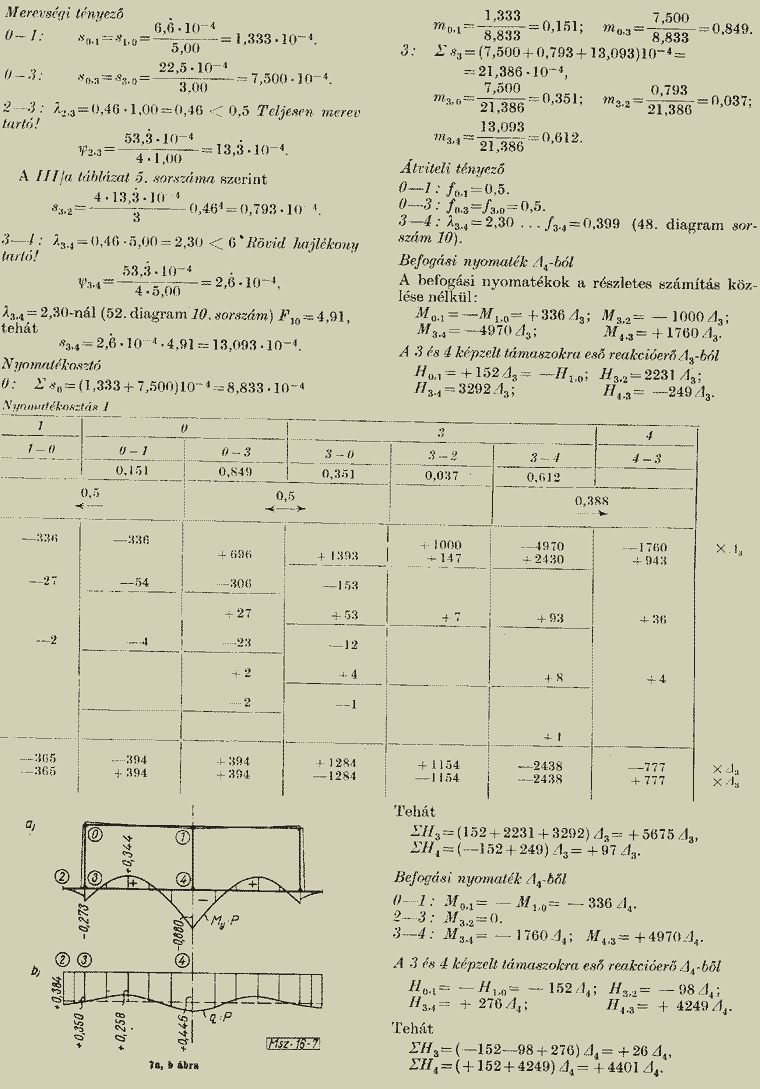 Merevségi tényező
0—1: s₀.₁=s₁.₀= 6,6̇·10⁻⁴ / 5,00 = 1,333·10⁻⁴.
0—3: s₀.₃=s₃.₀= 22,5·10⁻⁴ / 3,00 = 7,500·10⁻⁴.
2—3: λ₂.₃=0,46·1,00=0,46 < 0,5 Teljesen merev
tartó!
ψ₂.₃= 53,3̇·10⁻⁴ / 4·1,00 = 13,3̇·10⁻⁴.
A III/a táblázat 5. sorszáma szerint
s₃.₂= 4·13,3̇·10⁻⁴ / 3 0,46⁴=0,793·10⁻⁴.
3—4: λ₃.₄=0,46·5,00=2,30 < 6 Rövid hajlékony
tartó!
ψ₃.₄= 53,3̇·10⁻⁴ / 4·5,00 = 2,6̇·10⁻⁴,
λ₃.₄=2,30-nál (52. diagram 10. sorszám) F₁₀=4,91,
tehát
s₃.₄=2,6̇·10⁻⁴·4,91=13,093·10⁻⁴.
Nyomatékosztó
0: Σs₀=(1,333+7,500)10⁻⁴=8,833·10⁻⁴
m₀.₁= 1,333 / 8,833 =0,151; m₀.₃= 7,500 / 8,833 =0,849.
3: Σs₃=(7,500+0,793+13,093)10⁻⁴=
=21,386·10⁻⁴,
m₃.₀= 7,500 / 21,386 =0,351; m₃.₂= 0,793 / 21,386 =0,037;
m₃.₄= 13,093 / 21,386 =0,612.
Átviteli tényező
0—1: f₀.₁=0,5.
0—3: f₀.₃=f₃.₀=0,5.
3—4: λ₃.₄=2,30 ... f₃.₄=0,399 (48. diagram sor-
szám 10).
Befogási nyomaték Δ₄-ból
A befogási nyomatékok a részletes számítás köz-
lése nélkül:
M₀.₁=—M₁.₀=+336 Δ₃; M₃.₂=—1000 Δ₃;
M₃.₄=—4970 Δ₃; M₄.₃=+1760 Δ₃.
A 3 és 4 képzelt támaszokra eső reakcióerő Δ₃-ból
H₀.₁=+152 Δ₃=—H₁.₀; H₃.₂=2231 Δ₃;
H₃.₄=3292 Δ₃; H₄.₃=—249 Δ₃.
Nyomatékosztás I
1 0 3 4
1—0 0—1 0—3 3—0 3—2 3—4 4—3
0,151 0,849 0,351 0,037 0,612
0,5 0,5 0,388
← ↔ →
—336 —336 +1000 —4970 —1760 ×Δ₃
+696 +1393 +147 +2430 +943
—27 —54 —306 —153
+27 +53 +7 +93 +36
—2 —4 —23 —12
+2 +4 +8 +4
—2 —1
+1
—365 —394 +394 +1284 +1154 —2438 —777 ×Δ₃
—365 +394 +394 —1284 —1154 —2438 +777 ×Δ₃
a)
0 1
+0,344
2 3 4
+ — +
-0,273
-0,880
My·P
b)
2 3 4
+0,384
+0,350
+0,258
+0,446
q·P
Msz-16-7
7a, b ábra
Tehát
ΣH₃=(152+2231+3292) Δ₃=+5675 Δ₃,
ΣH₄=(—152+249) Δ₃=+97 Δ₃.
Befogási nyomaték Δ₄-ből
0—1: M₀.₁=—M₁.₀=—336 Δ₄.
2—3: M₃.₂=0.
3—4: M₃.₄=—1760 Δ₄; M₄.₃=+4970 Δ₄.
A 3 és 4 képzelt támaszokra eső reakcióerő Δ₄-ből
H₀.₁=—H₁.₀=—152 Δ₄; H₃.₂=—98 Δ₄;
H₃.₄=+276 Δ₄; H₄.₃=+4249 Δ₄.
Tehát
ΣH₃=(—152—98+276) Δ₄=+26 Δ₄,
ΣH₄=(+152+4249) Δ₄=+4401 Δ₄.